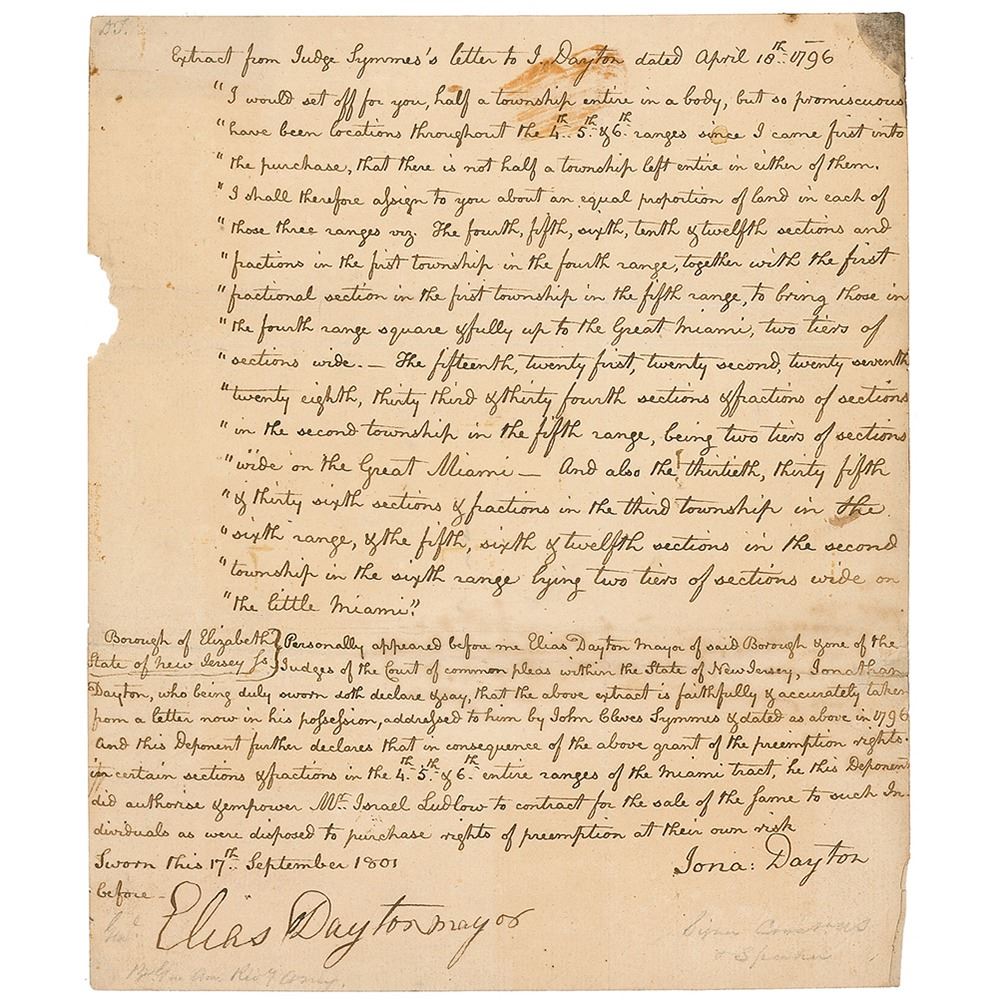 Extract from Judge Symmes's letter to J. Dayton dated April 18th. 1796
"I would set off for you, half a township entire in a body, but so promiscuous
"have been locations throughout the 4th. 5th. & 6th. ranges since I came first into
"the purchase, that there is not half a township left entire in either of them.
"I shall therefore assign to you about an equal proportion of land in each of
"those three ranges viz. The fourth, fifth, sixth, tenth & twelfth sections and
"fractions in the first township in the fourth range, together with the first
"fractional section in the first township in the fifth range, to bring those in
"the fourth range square & fully up to the Great Miami, two tiers of
"sections wide. — The fifteenth, twenty first, twenty second, twenty seventh
"twenty eighth, thirty third & thirty fourth sections & fractions of sections
"in the second township in the fifth range, being two tiers of sections
"wide on the Great Miami — And also the thirtieth, thirty fifth
"& thirty sixth sections & fractions in the third township in the
"sixth range, & the fifth, sixth & twelfth sections in the second
"township in the sixth range lying two tiers of sections wide on
"the little Miami."
Borough of Elizabeth } Personally appeared before me Elias Dayton Mayor of said Borough & one of the
State of New Jersey Ss. Judges of the Court of common pleas within the State of New Jersey, Jonathan
Dayton, who being duly sworn doth declare & say, that the above extract is faithfully & accurately taken
from a letter now in his possession, addressed to him by John Cleves Symmes & dated as above in 1796
And this Deponent further declares that in consequence of the above grant of the preemption rights
in certain sections & fractions in the 4th. 5th. & 6th. entire ranges of the Miami tract, he this Deponent
did authorise & empower Mr. Israel Ludlow to contract for the sale of the same to such In-
dividuals as were disposed to purchase rights of preemption at their own risk
Sworn this 17th. September 1801 Jona: Dayton
before —
Elias Dayton mayor
Signer Cons
& Speaker
Br. Gen Am. Rev. Army.